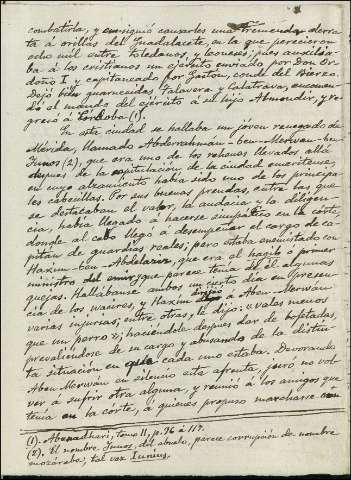 combatirla, y consiguió causarles una tremenda derro-
ta á orillas del Guadalacete, en la que perecieron
ocho mil entre toledanos y leoneses; pues auxilia-
ba á los cristianos un ejército enviado por Don Or-
doño I y capitaneado por Gaston, conde del Bierzo.
Dejó bien guarnecidas, Talavera y Calatrava, encomen-
dó el mando del ejército á su hijo Almondir, y re-
gresó á Córdoba (1).
En esta ciudad se hallaba un jóven renegado de
Mérida, llamado Abderrahman-ben-Merwan-ben-
Junos (2), que era uno de los rehenes llevados allá
despues de la capitulación de la ciudad emeritense,
en cuyo alzamiento habia sido uno de los principa-
les cabecillas. Por sus buenas prendas, entre las que
se destacaban el valor, la audacia y la diligen-
cia, habia llegado á hacerse simpático en la córte,
donde al cabo llegó á desempeñar el cargo de ca-
pitan de guardias reales; pero estaba enemistado con
Haxim-ben-Abdelaziz, que era el hagib ó primer
ministro del emir, que parece tenia de él algunas
quejas. Hallábanse ambos un cierto dia en presen-
cia de los wacires, y Haxim dirigió á Aben-Merwan
varias injurias; entre otras, le dijo: «vales menos
que un perro»; haciéndole despues dar de bofetadas,
prevaliendose de su cargo y abusando de la distin-
ta situación en que cada uno estaba. Devorando
Aben-Merwan en silencio esta afrenta, juró no vol-
ver á sufrir otra alguna, y reunió á los amigos que
tenia en la córte, á quienes propuso marcharse con
(1). Abenadhari, tomo II, p. 96 á 117.
(2). El nombre Junos, del abuelo, parece corrupción de nombre
mozárabe, tal vez Iunius.